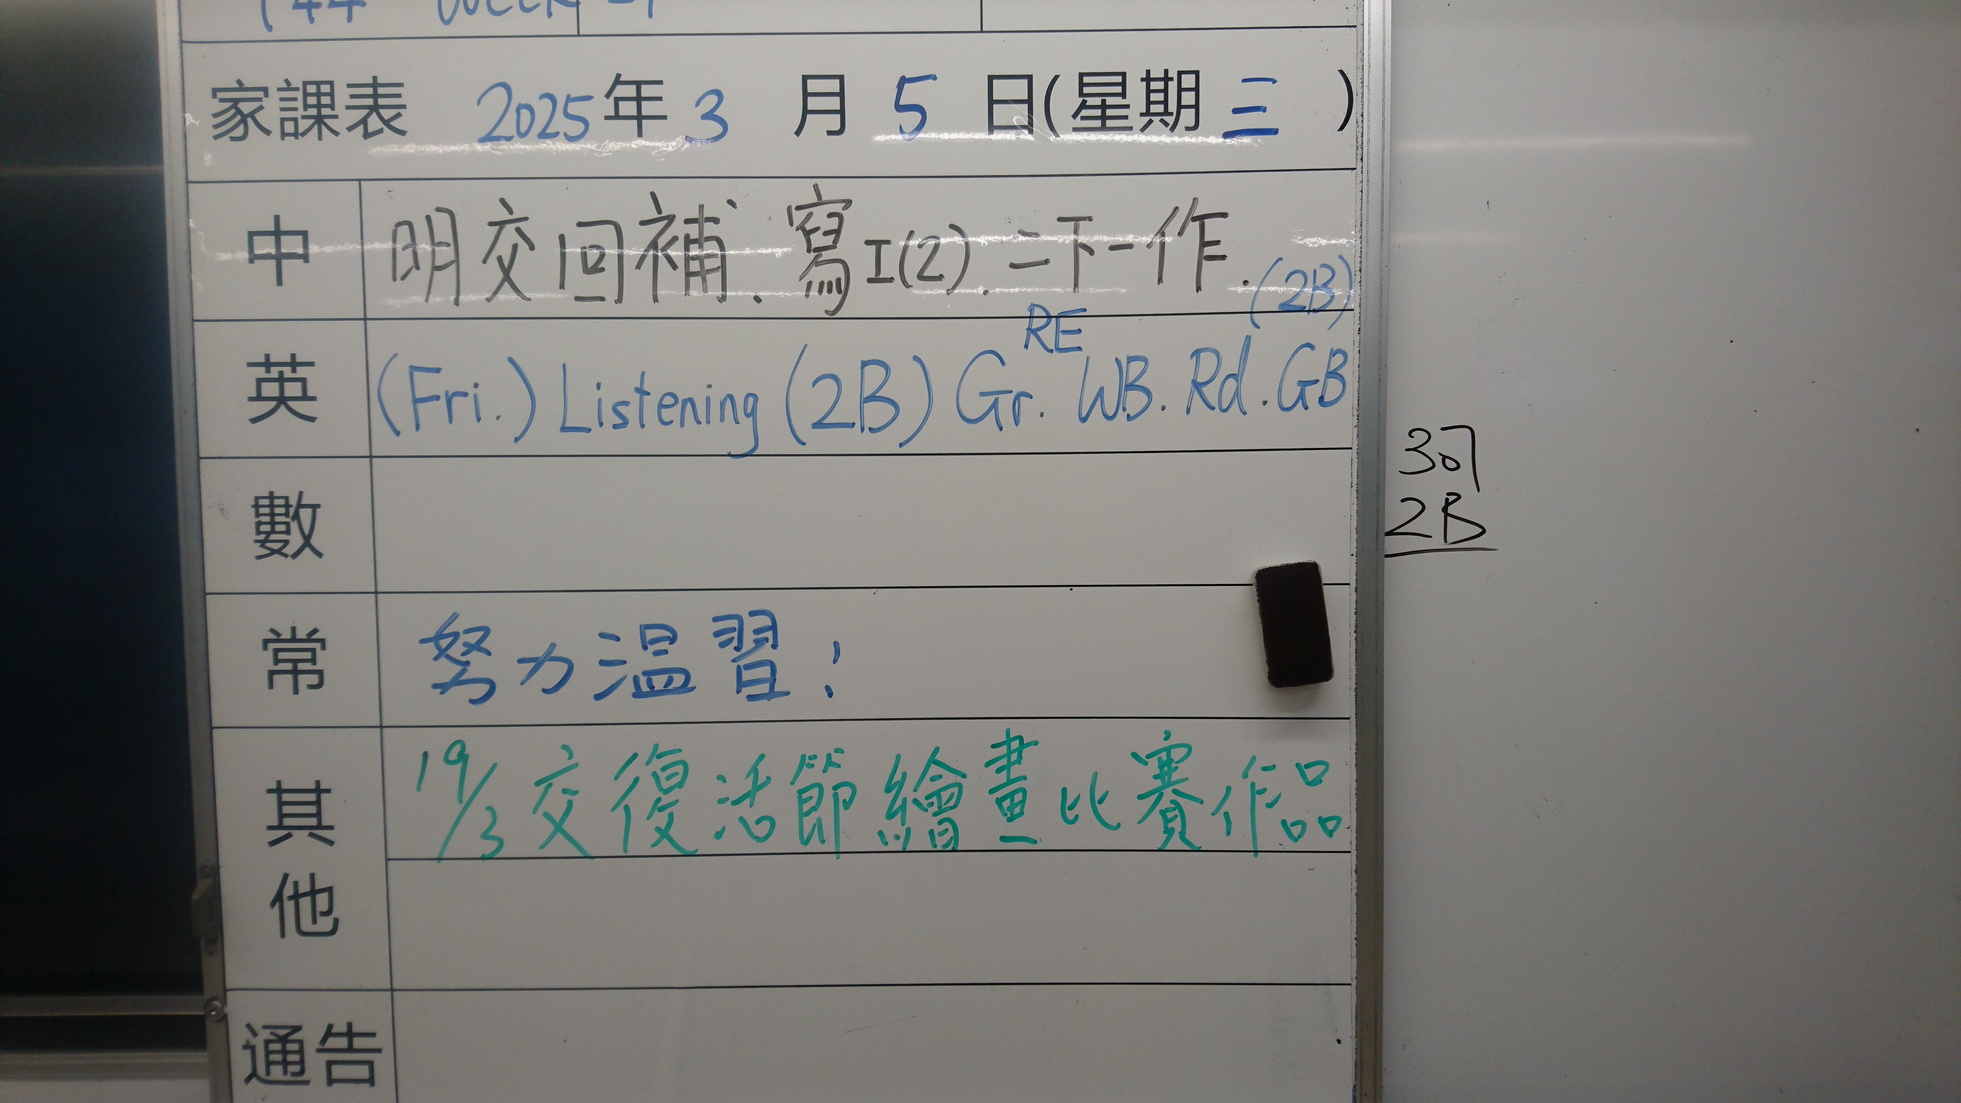 家課表 2025年 3 月 5 日(星期 三 )
中 明交回補、寫I(2). 二下一作.
(2B)
RE
英 (Fri.) Listening (2B) Gr. WB. Rd. GB
2B
數
常 努力温習!
其他 19/3 交復活節繪畫比賽作品
通告